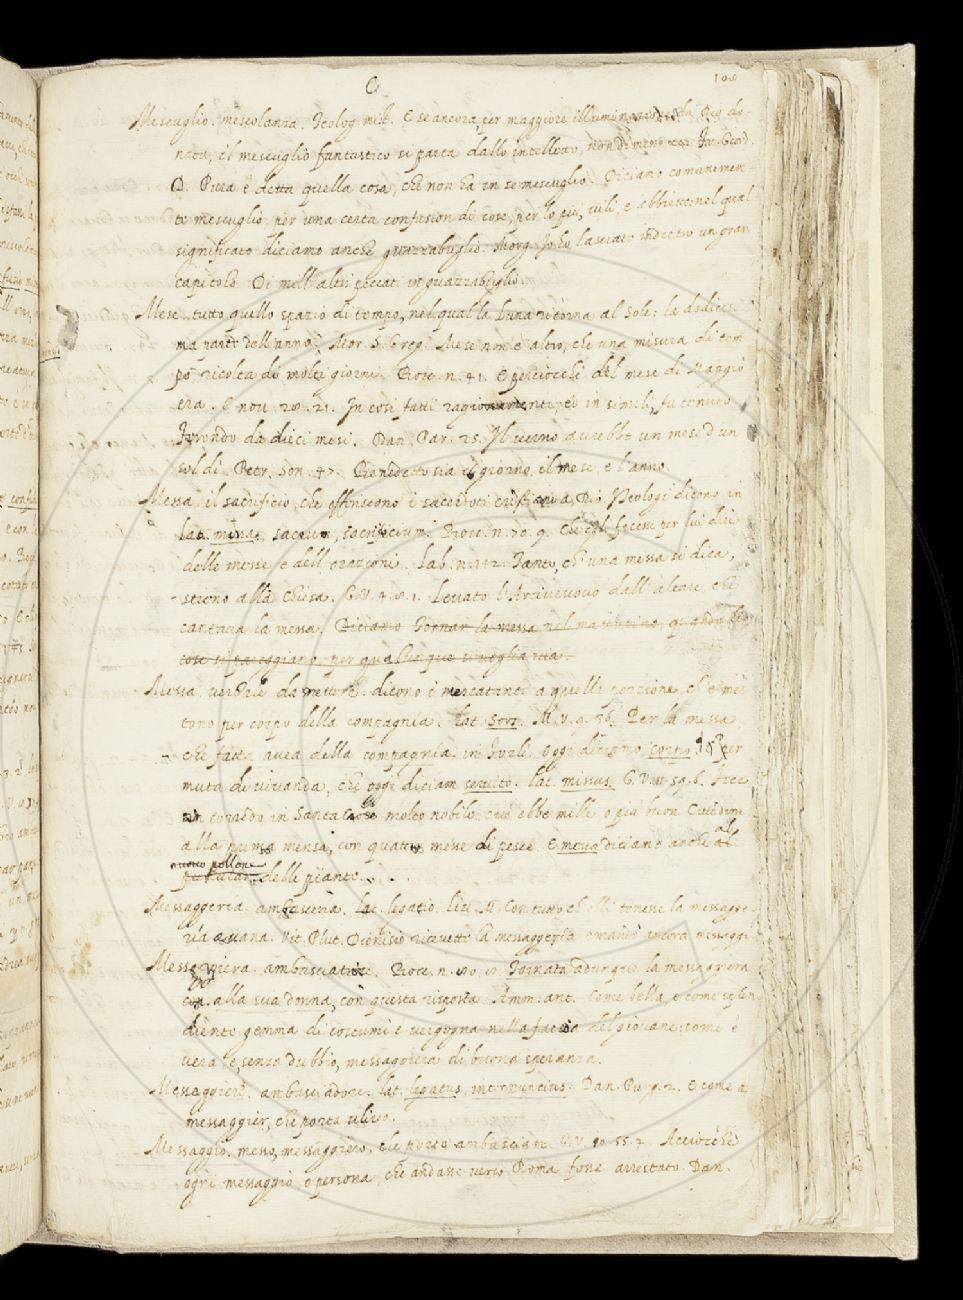 108
Mescuglio. mescolanza. Teolog. mist. E se ancora, per maggiore illuminazione Dio do-
nata, il mescuglio fantastico si parta dallo intelletto, nondimeno
D. Pura è detta quella cosa, che non ha in se mescuglio. Diciamo comunemen-
te mescuglio, per una certa confusion di cose, per lo più, vili, e abbiette: nel qual
significato diciamo anche guazzabuglio. Morg. Io ho lasciato indietro un gran
capitolo Di mill'altri peccati in guazzabuglio.
Mese. tutto quello spazio di tempo, nel qual la Luna ritorna al Sole: la dodicesi-
ma parte dell'anno. Mor. S. Greg. Mese non è altro, che una misura di tem
po ricolta di molti giorni. Bocc. n. 41. E perciocchè del mese di Maggio
era. E nov. 28. 21. In così fatti ragionamenti, ed in simili, fu tenuto
Ferondo da dieci mesi. Dan. Par. 25. Il verno avrebbe un mese d'un
sol dì. Petr. Son. 47. Benedetto sia il giorno, il mese, e l'anno.
Messa. il sacrificio, che offeriscono i sacerdoti cristiani a Dio. Teologi dicono in
lat. missa, sacrum, sacrificium. Bocc. n. 70. 9. Che egli facesse per lui dir
delle messe, e dell'orazioni. Lab. n. 212. Tanto, ch'una messa si dica,
stieno alla Chiesa. G.V. 4. 18. 1. Levato l'Arcivescovo dall'altare, che
cantava la messa. Diciamo Tornar la messa nel mattutino, quando le
cose si pareggiano, per qualunque
Messa. verbale da mettere. dicono i mercatanti a quella porzione, ch'e' met
tono per corpo della compagnia. lat. sors. M.V. 9. 36. Per la messa
che fatta avea della compagnia in Furlì. Oggi diciamo corpo. per
muta di vivanda, che oggi diciam servito. lat. missus. G.V. 59. 6. Fece
un corredo in Santa Croce molto nobile, ove ebbe mille o più buon Cittadini
alla prima mensa, con quattro messe di pesce. E messa diciamo anche al
nuovo pollone
delle piante.
Messaggeria. ambasceria. lat. legatio. Liv. M. Con tutto ch'elli tenesse la messagge-
ria a vana. Vit. Plut. Dionisio ricevette la messaggeria e mandò ancora messaggi
Messaggiera. ambasciatrice. Bocc. n. 80. 8. Tornata adunque la messaggiera
alla sua donna, con questa risposta. Amm. ant. Come bella, e come splen
diente gemma di costumi è vergogna nella faccia del giovane: come è
vera, e senza dubbio, messaggiera di buona speranza.
Messaggiere. ambasciadore. lat. legatus, internuncius. Dan. Purg. 2. E come a
messaggier, che porta ulivo.
Messaggio. messo, messaggiero, che porta ambasciate. G.V. 90. 55. 2. Acciocchè
ogni messaggio, o persona, che andasse verso Roma fosse arrestato. Dan.